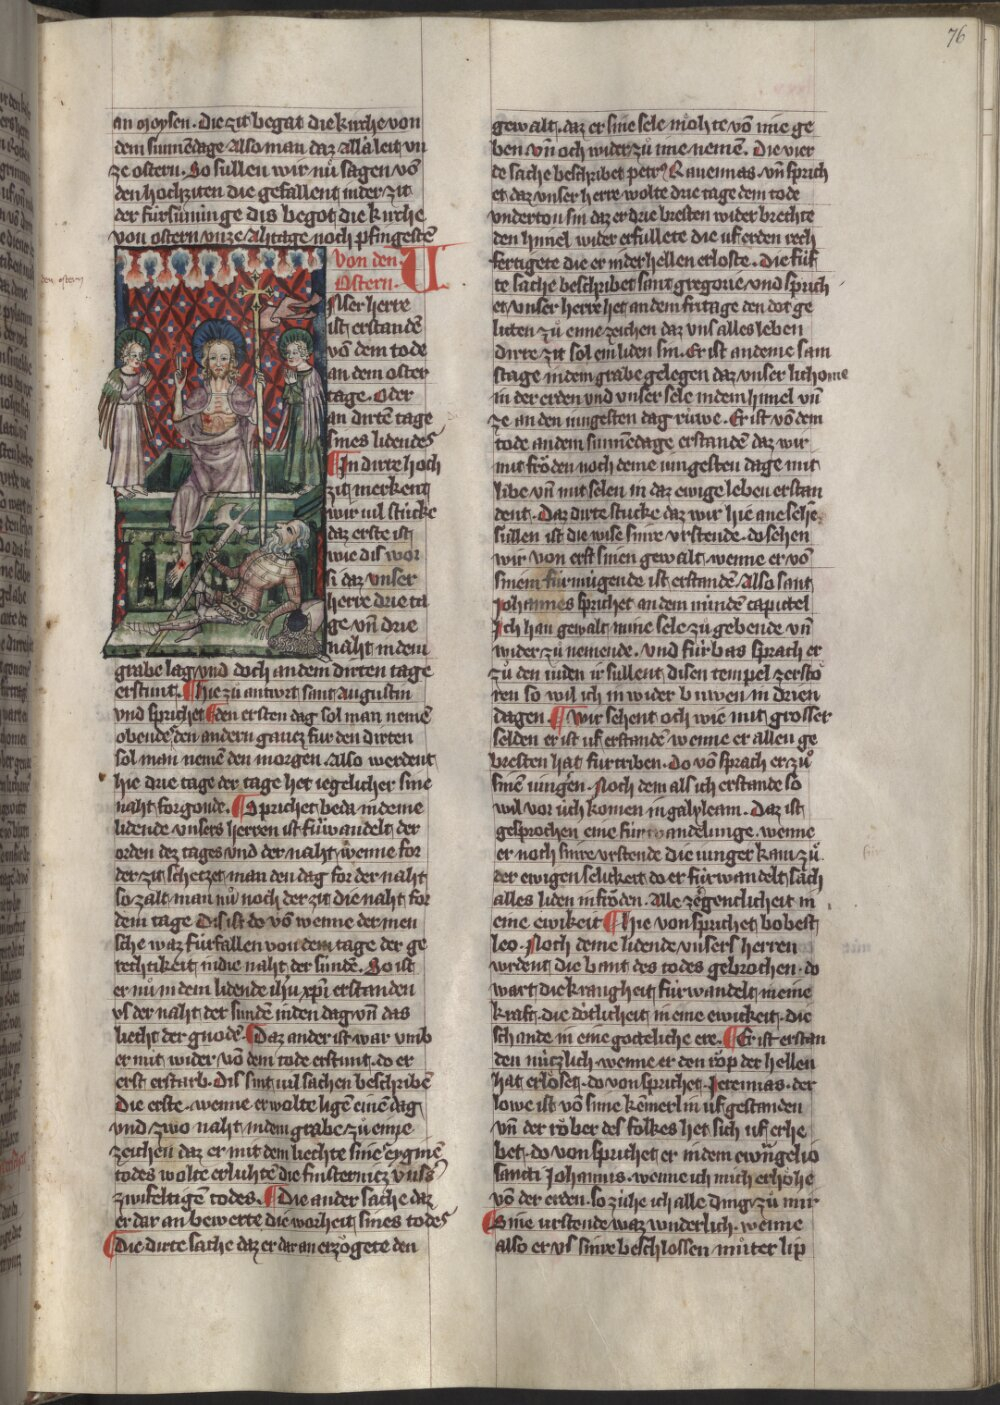 76
an moysen. Die zit begat die kirche von
dem sunnēdage Also man daz alla leit vn
ze ostern. So sullen wir nů sagen von
den hochziten die gefallent in der zit
der fürsůnunge dis begot die kirche
von ostern vnze Ahtage noch pfingestē
Von den
Ostern. U
nser herre
ist erstandē
vō dem tode
an dem oster
tage. Oder
an dirtē tage
sines lidendes
In dirre hoch
zit merkent
wir vil stücke
daz erste ist
wie dis wor
si daz vnser
herre drie ta
ge vn̄ drie
naht in dem
grabe lag vnd doch an dem dirten tage
erstunt. hie zů antwrt sant Augustin
vnd sprichet den ersten dag sol man nemē
obende den andern gancz für den dirten
sol man nemē den morgen. Also werdent
hie drie tage der tage het iegelicher sine
naht forgonde. Sprichet beda in deme
lidende vnsers herren ist fürwandelt der
orden dez tages vnd der naht wenne for
der zit schetzet man den dag for der naht
so zalt man nů noch der zit die naht for
dem tage Dis ist do vō wenne der men
sche waz fürfallen von dem tage der ge
rechtikeit in die naht der sundē. So ist
er nů in dem lidende ihū xpī erstanden
vs der naht der sundē in den dag vn̄ das
liecht der gnode. Daz ander ist war vmb
er mit wider vō dem tode erstunt. do er
erst erstarb. Dis sint vil sachen beschribē
Die erste. wenne er wolte ligē einē dag
vnd zwo naht in dem grabe zů eime
zeichen daz er mit dem liechte sinē eyginē
todes wolte erluhtē die finsternicz vnsˢ
zwifeltigē todes. Die ander sache daz
er dar an bewerte die worheit sines todes
Die dirte sache daz er dar an erzögete den
gewalt. daz er sine sele möhte vō ime ge
ben vn̄ och wider zů ime nemē. Die vier
de sache beschribet petrꝰ Rauennas. vn̄ sprich
et daz vnser herre wolte drie tage dem tode
vnderton sin daz er drie bresten wider brechte
den himel wider erfullete die uf erden rech
fertigete die er in der hellen erloste. Die füf
te sache beschribet sant gregorie vnd sprich
et vnser herre het an dem fritage den dot ge
litten zů eime zeichen daz vns alles leben
dirre zit sol ein liden sin. Er ist an deme sam
stage in dem grabe gelegen daz vnser lichome
in der erden vnd vnser sele in dem himel vn̄
ze an den iungesten tag růwe. Er ist vō dem
tode an dem sunnēdage erstandē daz wir
mit fröden noch deme iungesten dage mit
libe vn̄ mit selen in daz ewige leben erstan
dent. Daz dirte stucke daz wir hie ane sehe
sullen ist die wise sinre vrstende. do sehen
wir von erst sinen gewalt. wenne er vō
sinem fürmügende ist erstandē Also sant
Johannes sprichet an dem nündē capittel
Ich han gewalt mine sele zů gebende vn̄
wider zů nemende. vnd fürbas sprach er
zů den iuden ir sullent disen tempel zerstö
ren so wil ich in wider buwen in drien
dagen. Wir sehent och wie mit grosser
selden er ist uf erstandē wenne er allen ge
bresten hat fürtriben. Do vō sprach er zů
sinē iungern. Noch dem als ich erstande so
wil vor uch komen in galyleam. Daz ist
gesprochen eine fürwandelunge. wenne
er noch sinre vrstende die iunger kam zů
der ewigen selickeit do er fürwandelt sich
alles liden in fröden. Alle zergentlicheit in
eine ewikeit Hie von sprichet bobest
leo. Noch deme lidende vnsers herren
wrdent die bant des todes gebrochen. do
wart die krangheit fürwandelt in eine
kraft. die dötlicheit in eine ewickeit. die
schande in eine götteliche ere. Er ist erstan
den nüczlich. wenne er den röp der hellen
hat erlöset. do von sprichet. Jeremias. der
lowe ist vō sime kēmerlin uf gestanden
vn̄ der röber des folkes het sich uf erhe
bet. do von sprichet er in dem ewůgelio
sancti Johannis. wenne ich mich erhöhe
vō der erden. so zühe ich alle ding zů mir
Sine urstende waz wnderlich. wenne
also er vs sinre beschlossen můter lip